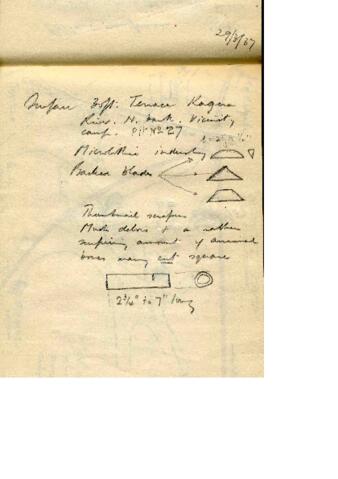 29/3/37
Surface 35ft. Terrace Kagera
River. N. bank. Vicinity
camp. Pit No 27
Microlithic industry
Backed blades
Thumbnail scrapers
Much debris & a rather
surprising amount of
bones many cut square
2 3/4" to 7" long